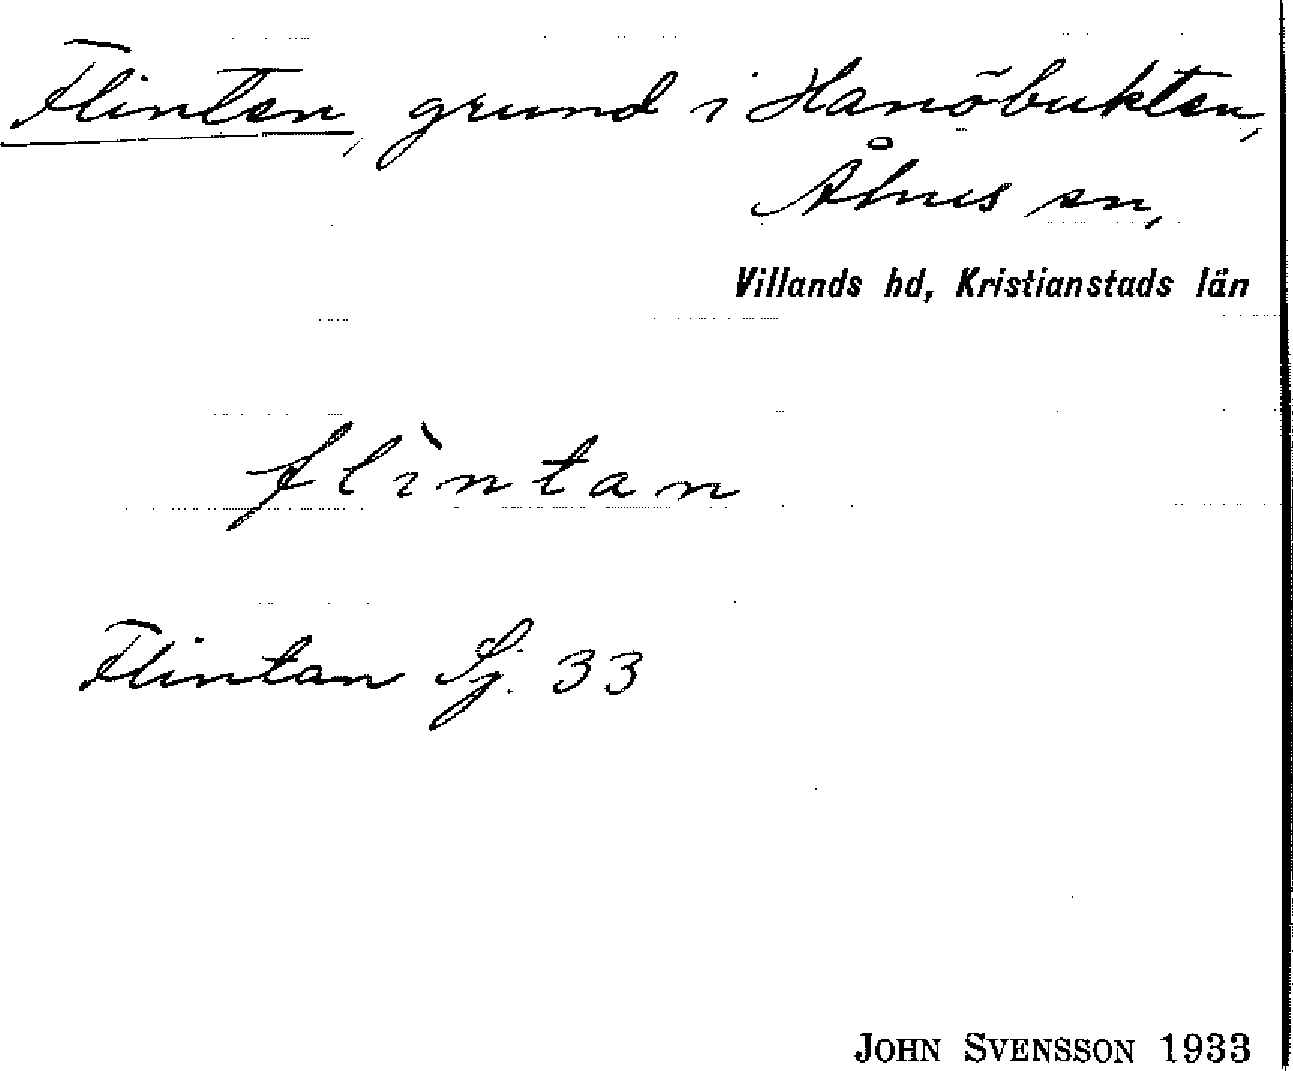 Flinten, grund i Hanöbukten,
Åhus sn,
Villands hd, Kristianstads län
flìntan
Flintan Sj. 33
JOHN SVENSSON 1933